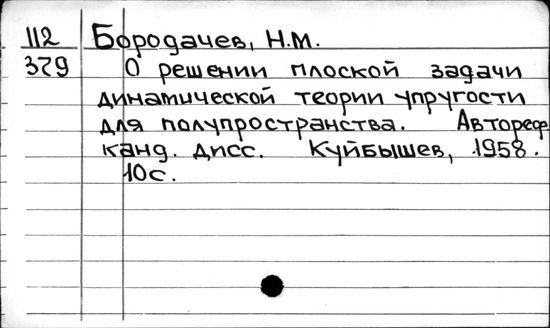 112 Бородачев, Н.М.
379 О решении плоской задачи
динатической теории упругости
для полупространства. Автореф.
канд. дисс. Куйбышев, 1958.
10с.